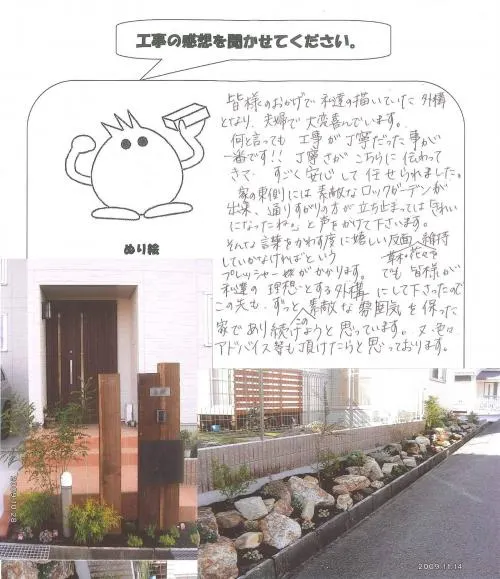 工事の感想を聞かせてください。
皆様のおかげで 私達の描いていた 外構
となり、夫婦で 大変喜んでいます。
何と言っても 工事が丁寧だった事が
一番です!! 丁寧さが こちらに 伝わって
きて、すごく 安心して 任せられました。
家の東側には 素敵な ロックガーデンが
出来、通りすがりの方が 立ち止まっては「きれい
になったね。」と 声をかけて下さいます。
そんな 言葉をかわす度に 嬉しい反面、維持
していかなければという
草木・花々を
プレッシャー 様がかかります。 でも 皆様が
私達の 理想とする外構 にして下さったので
この先も、ずっと 素敵な 雰囲気を 保った
家であり続けようと 思っています。又、色々
この
アドバイス等も 頂けたらと 思っております。
ぬり絵
2009.10.28
2009.11.14